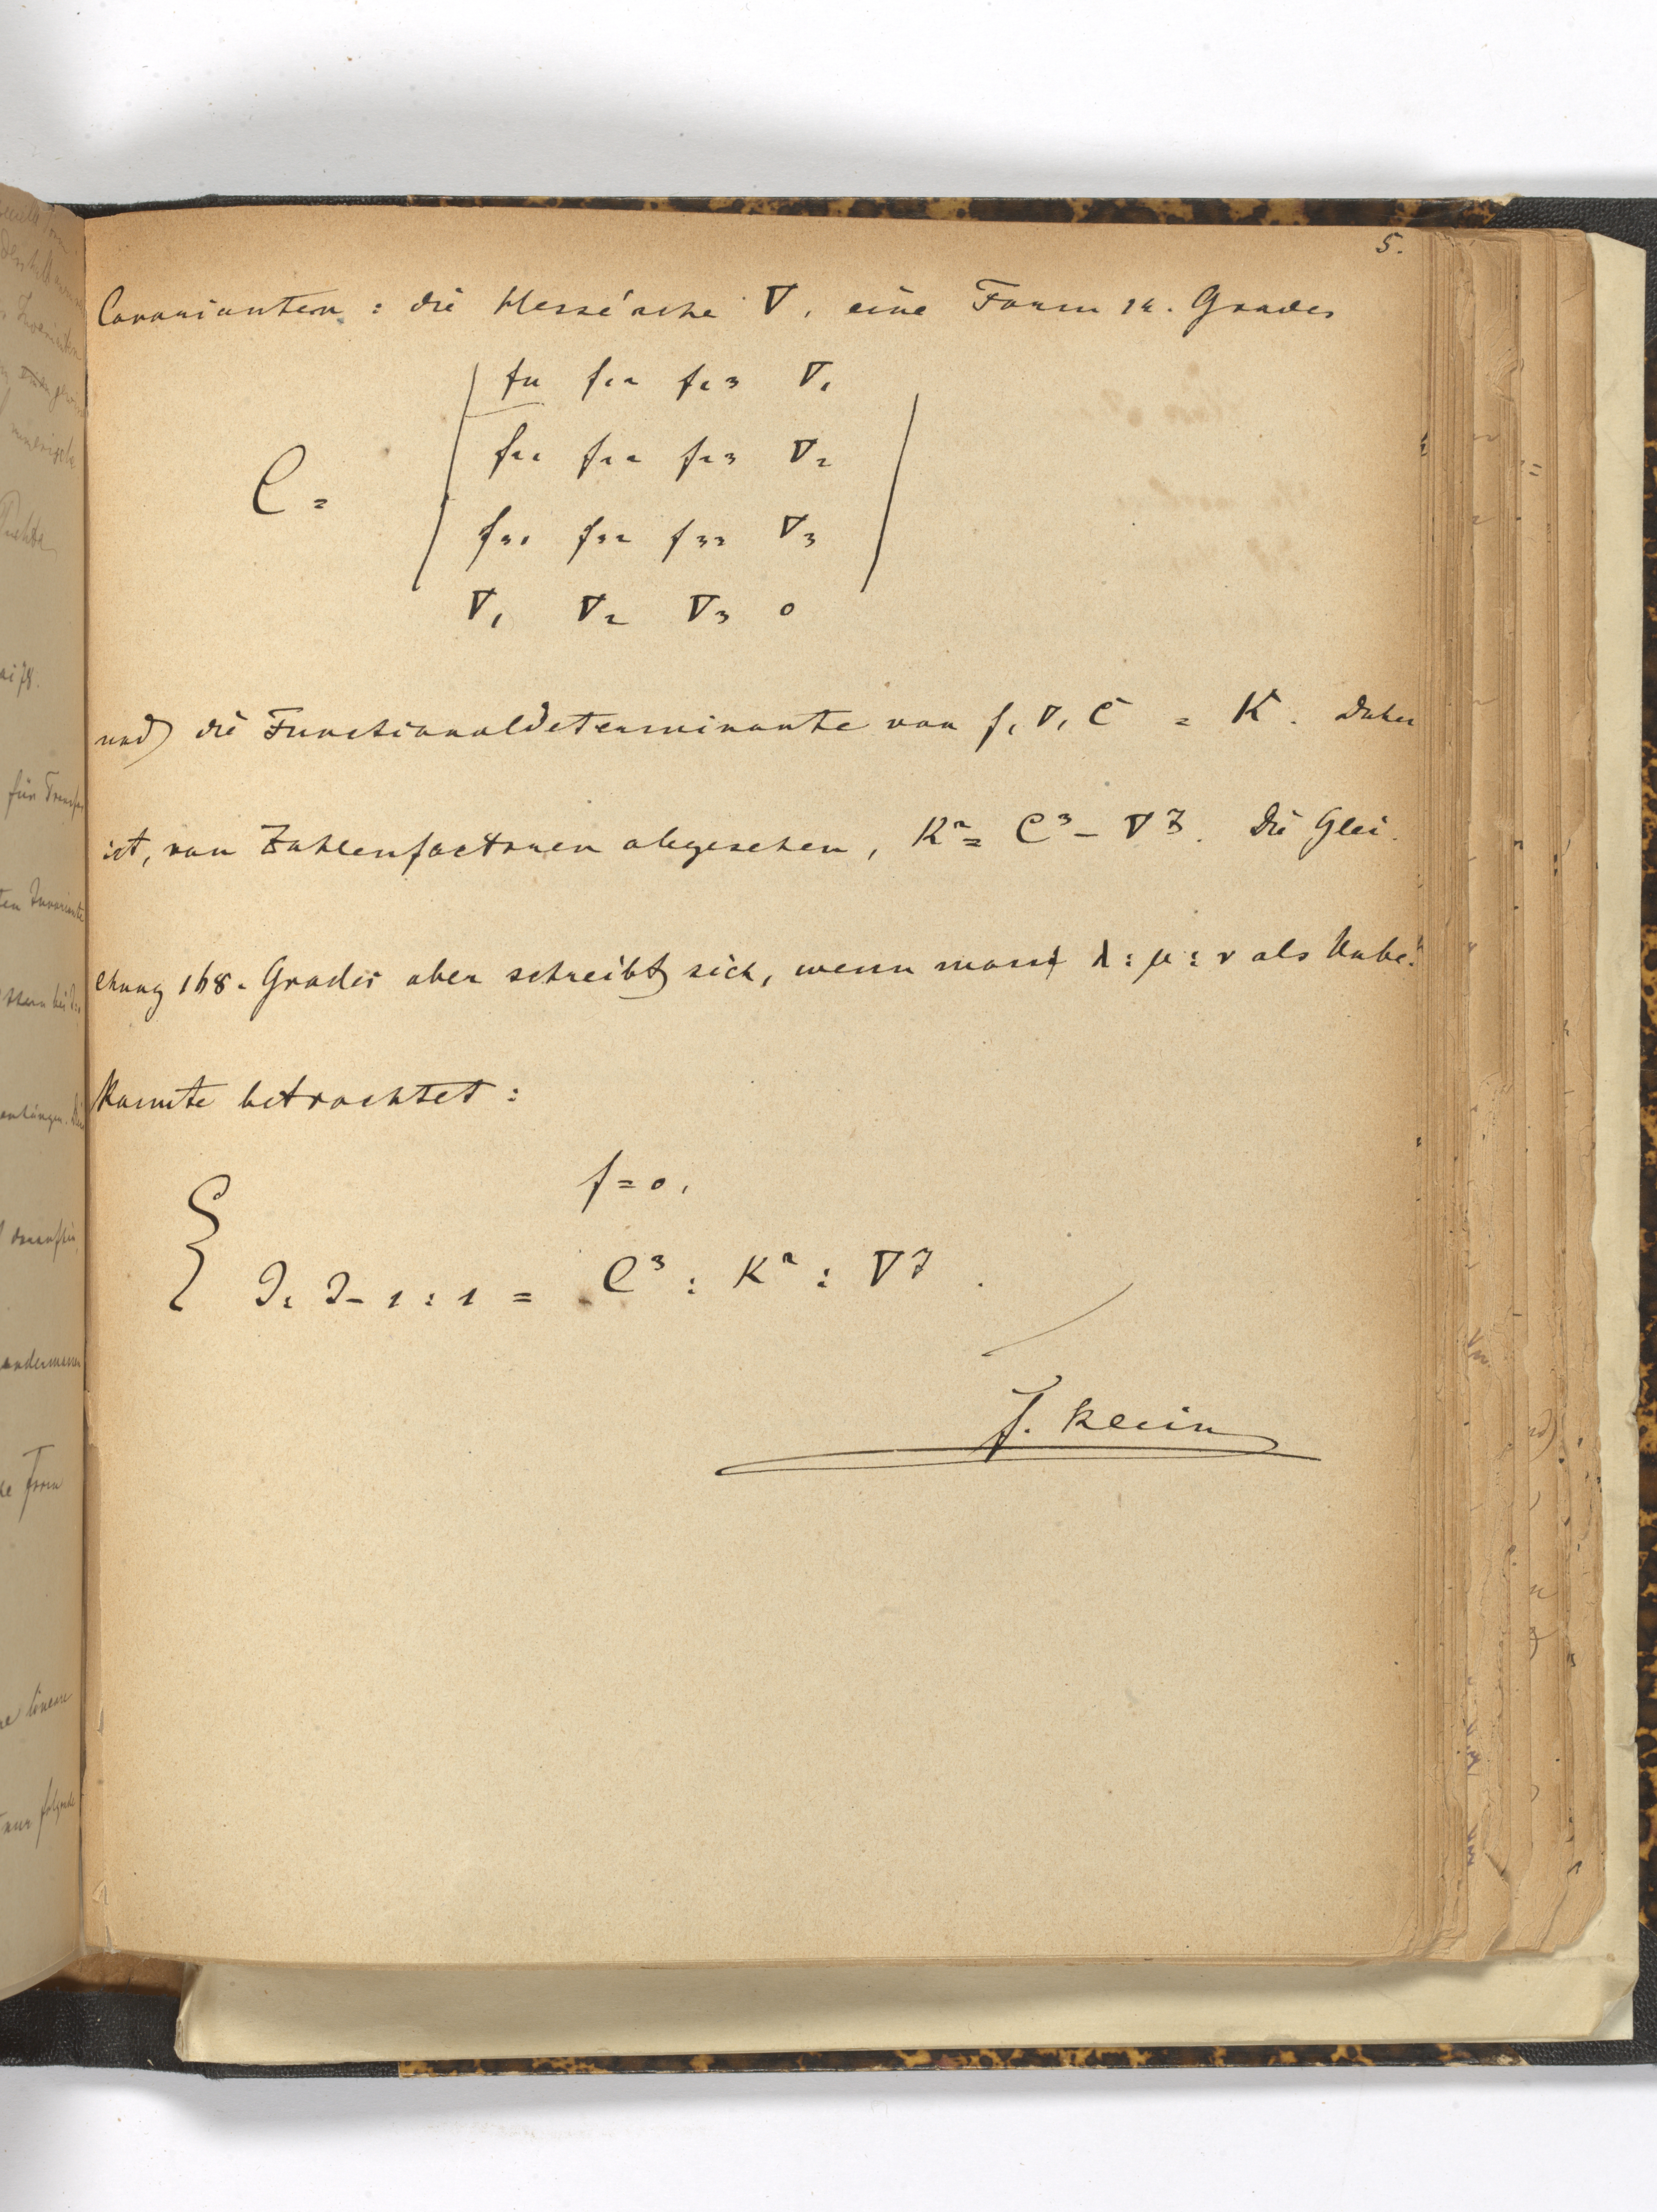 5.
Covarianten: die Hesse'sche ∇, eine Form 14. Grades
f11 f12 f13 ∇1
f21 f22 f23 ∇2
C =
f31 f32 f33 ∇3
∇1 ∇2 ∇3 0
und die Functionaldeterminante von f, ∇, C = K. Daher
ist, von Zahlenfactoren abgesehen, K² = C³ – ∇7. Die Glei-
chung 168. Grades aber schreibt sich, wenn man λ : μ : ν als Unbe-
kannte betrachtet:
f = 0,
J : J – 1 : 1 = C³ : K² : ∇7.
F. Klein